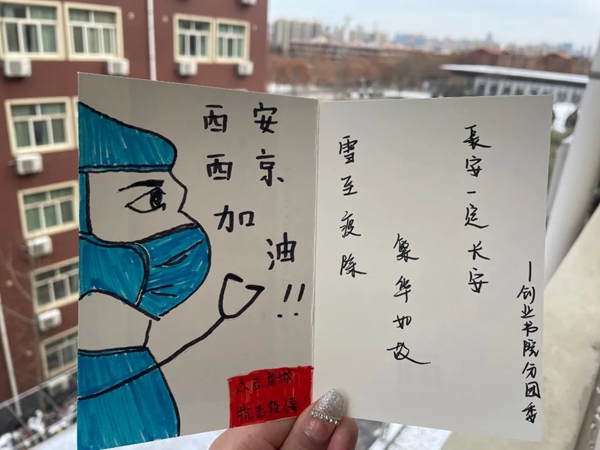 西安
西京
加
油!!
众志成城
抗击疫情
雪至疫除
繁华如故
長安一定长安
—创业书院分团委